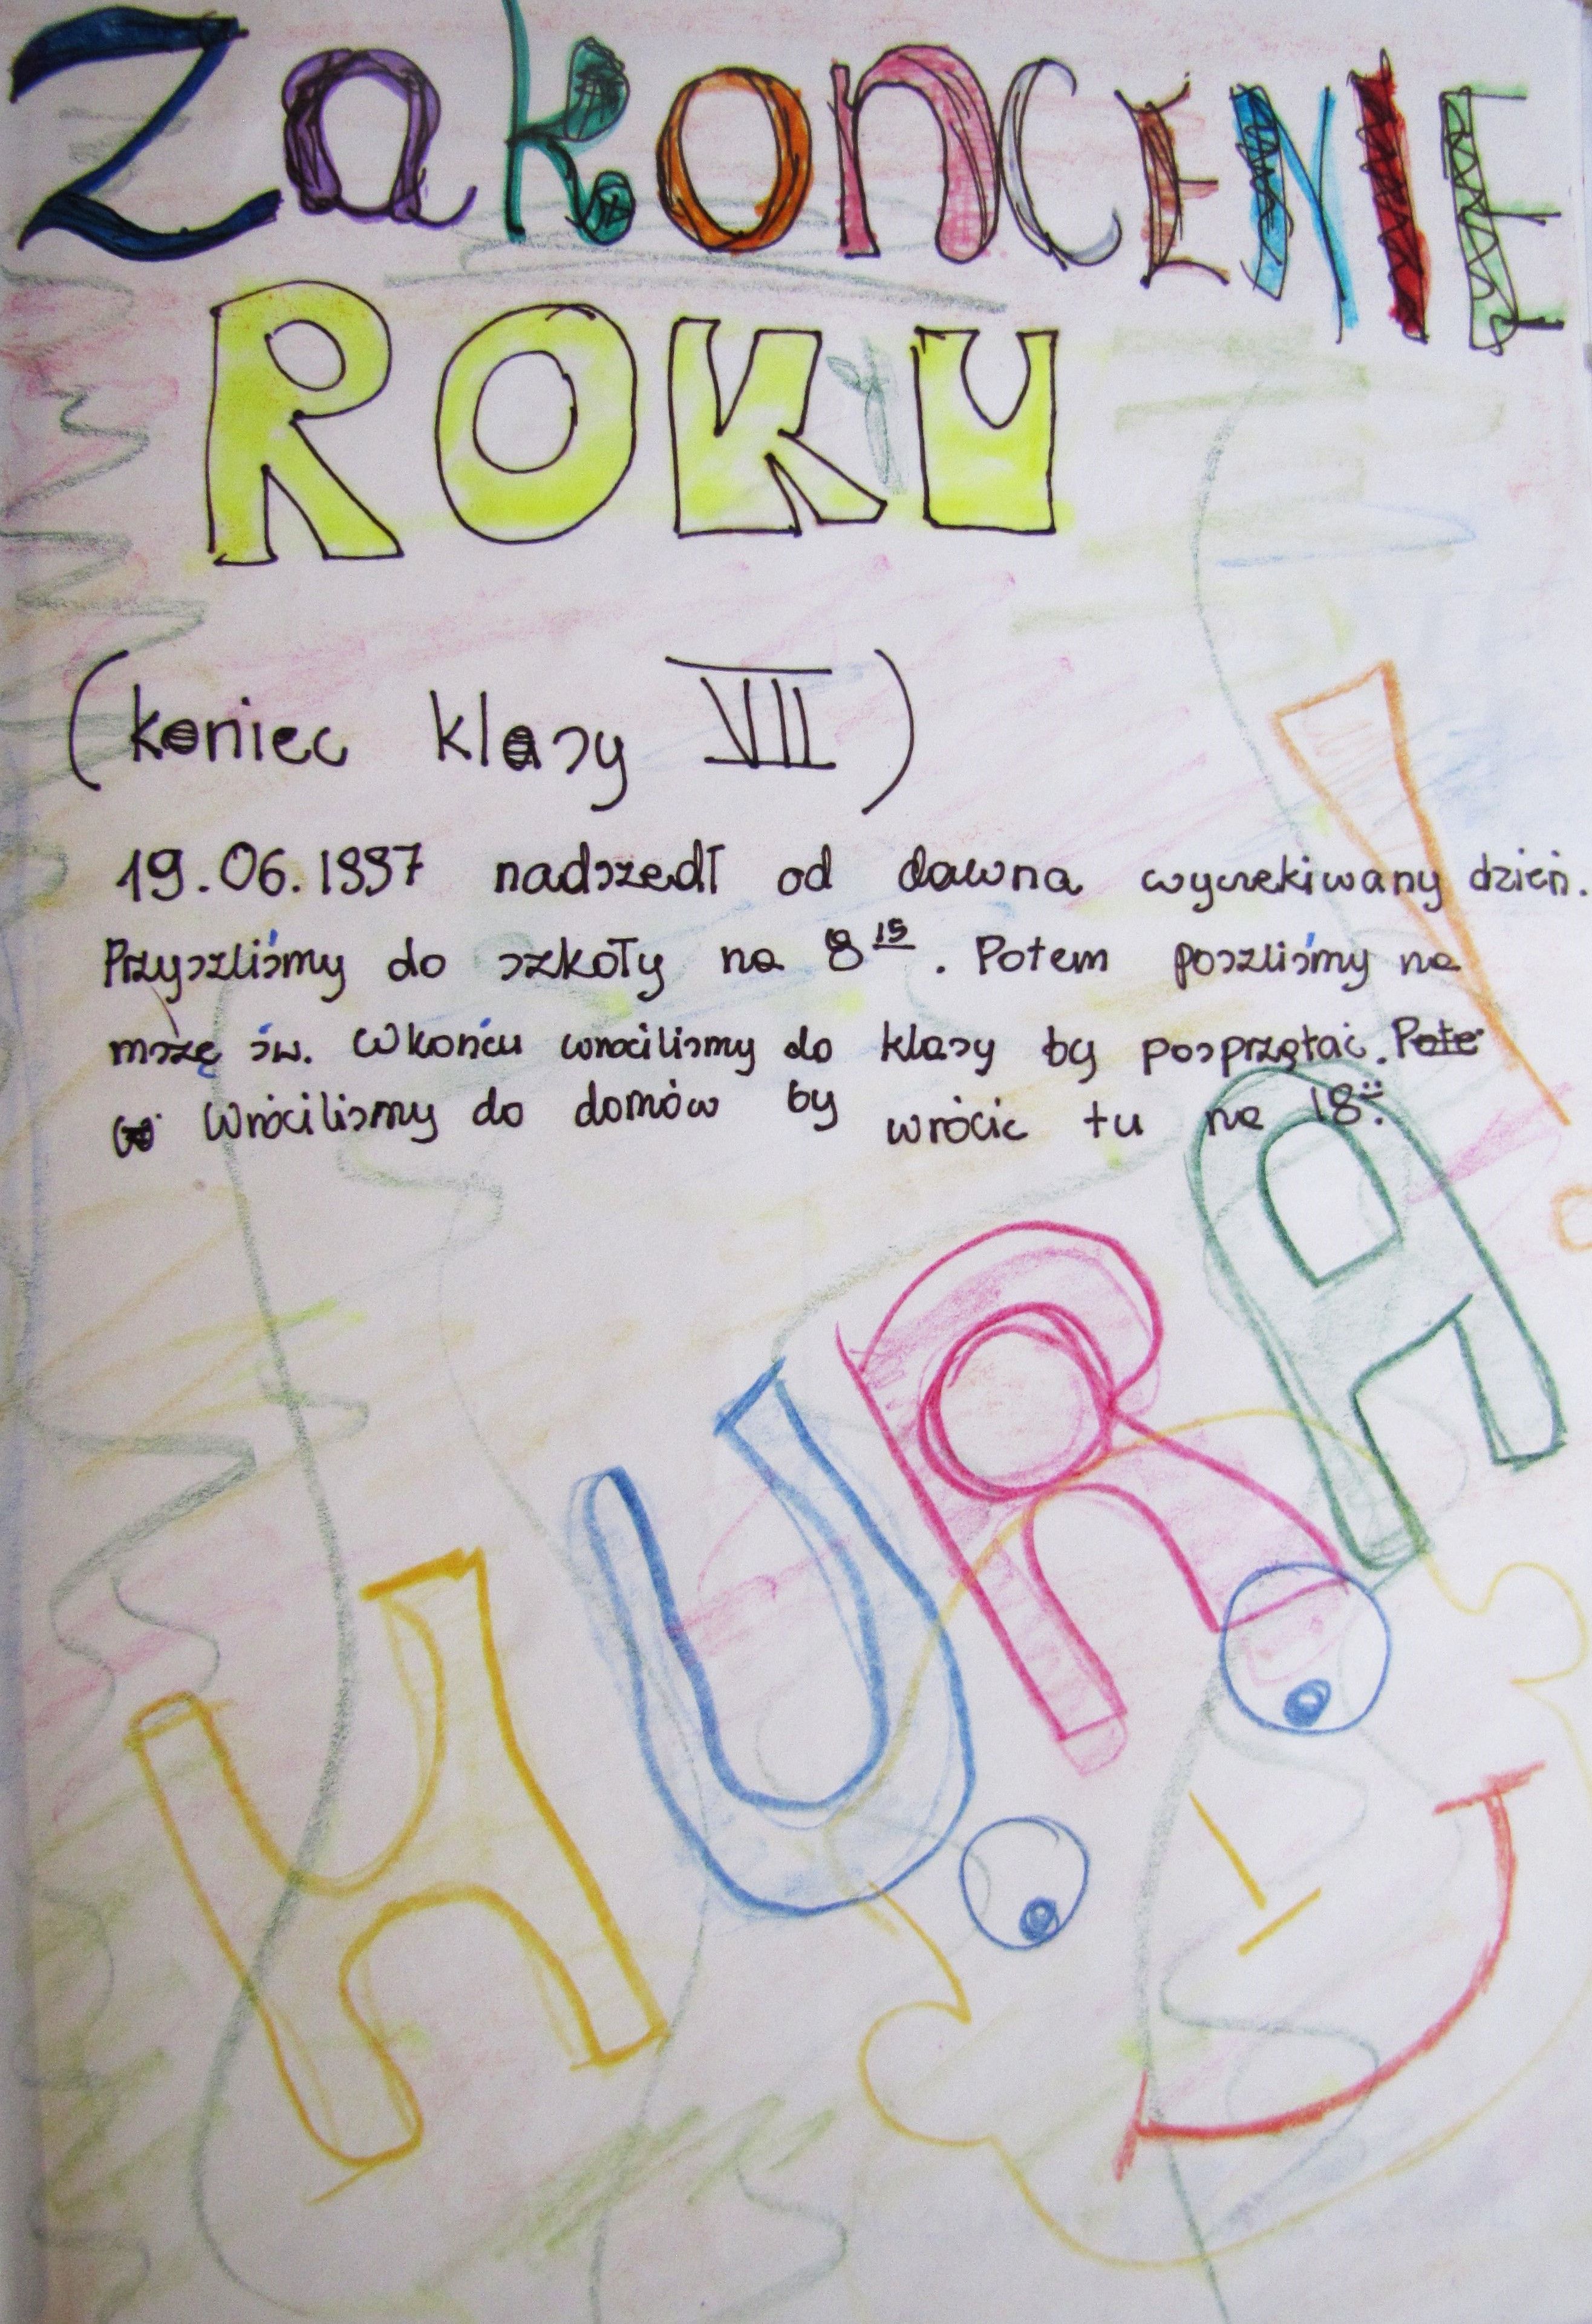 ZakoncENIE
ROKU
(koniec klasy VII)
19.06.1997 nadszedł od dawna wyczekiwany dzień.
Przyszliśmy do szkoły na 8 15. Potem poszliśmy na
mszę św. W końcu wróciliśmy do klasy by posprzątać. Pote
Wróciliśmy do domów by wrócić tu na 18
HURA!